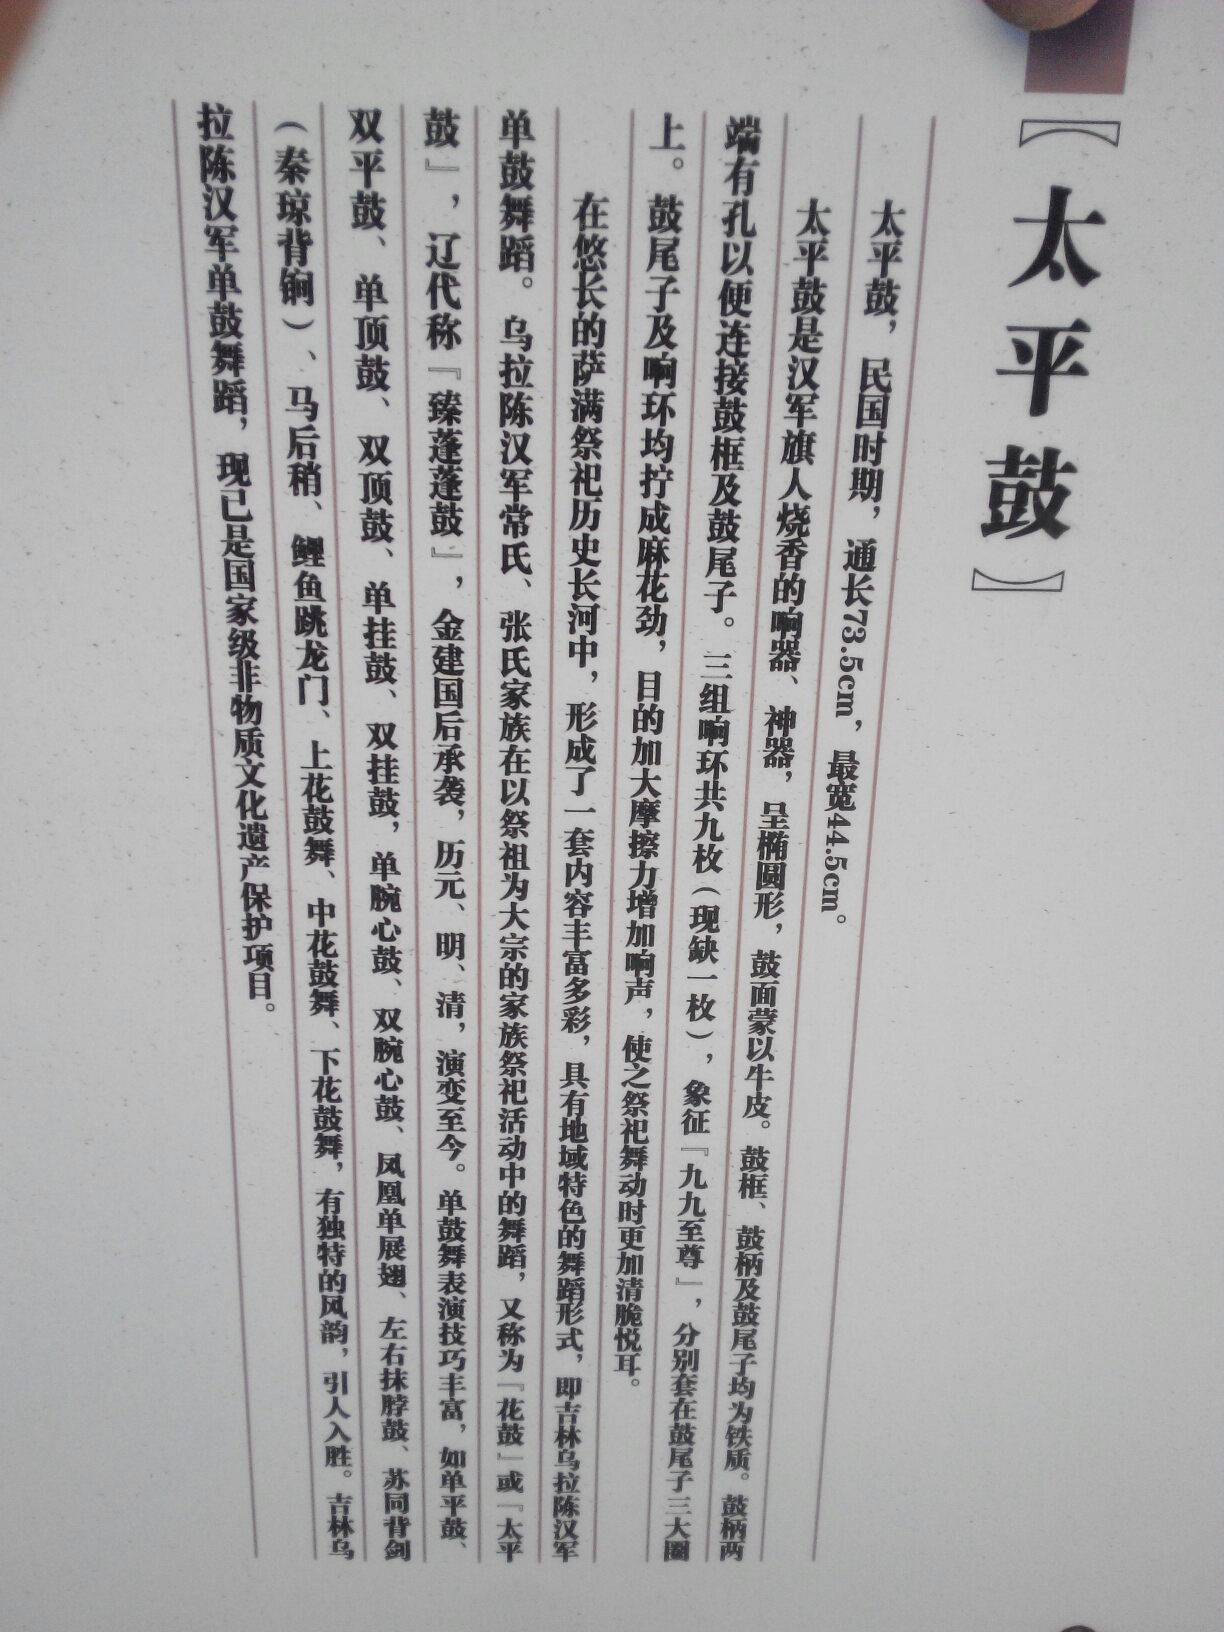 【太平鼓】
太平鼓，民国时期，通长73.5cm，最宽44.5cm。
太平鼓是汉军旗人烧香的响器、神器，呈椭圆形，鼓面蒙以牛皮。鼓框、鼓柄及鼓尾子均为铁质。鼓柄两
端有孔以便连接鼓框及鼓尾子。三组响环共九枚（现缺一枚），象征『九九至尊』，分别套在鼓尾子三大圈
上。鼓尾子及响环均拧成麻花劲，目的加大摩擦力增加响声，使之祭祀舞动时更加清脆悦耳。
在悠长的萨满祭祀历史长河中，形成了一套内容丰富多彩，具有地域特色的舞蹈形式，即吉林乌拉陈汉军
单鼓舞蹈。乌拉陈汉军常氏、张氏家族在以祭祖为大宗的家族祭祀活动中的舞蹈，又称为『花鼓』或『太平
鼓』，辽代称『臻蓬蓬鼓』，金建国后承袭，历元、明、清，演变至今。单鼓舞表演技巧丰富，如单平鼓、
双平鼓、单顶鼓、双顶鼓、单挂鼓、双挂鼓，单腕心鼓、双腕心鼓、凤凰单展翅、左右抹脖鼓、苏同背剑
（秦琼背锏）、马后稍、鲤鱼跳龙门、上花鼓舞、中花鼓舞、下花鼓舞，有独特的风韵，引人入胜。吉林乌
拉陈汉军单鼓舞蹈，现已是国家级非物质文化遗产保护项目。